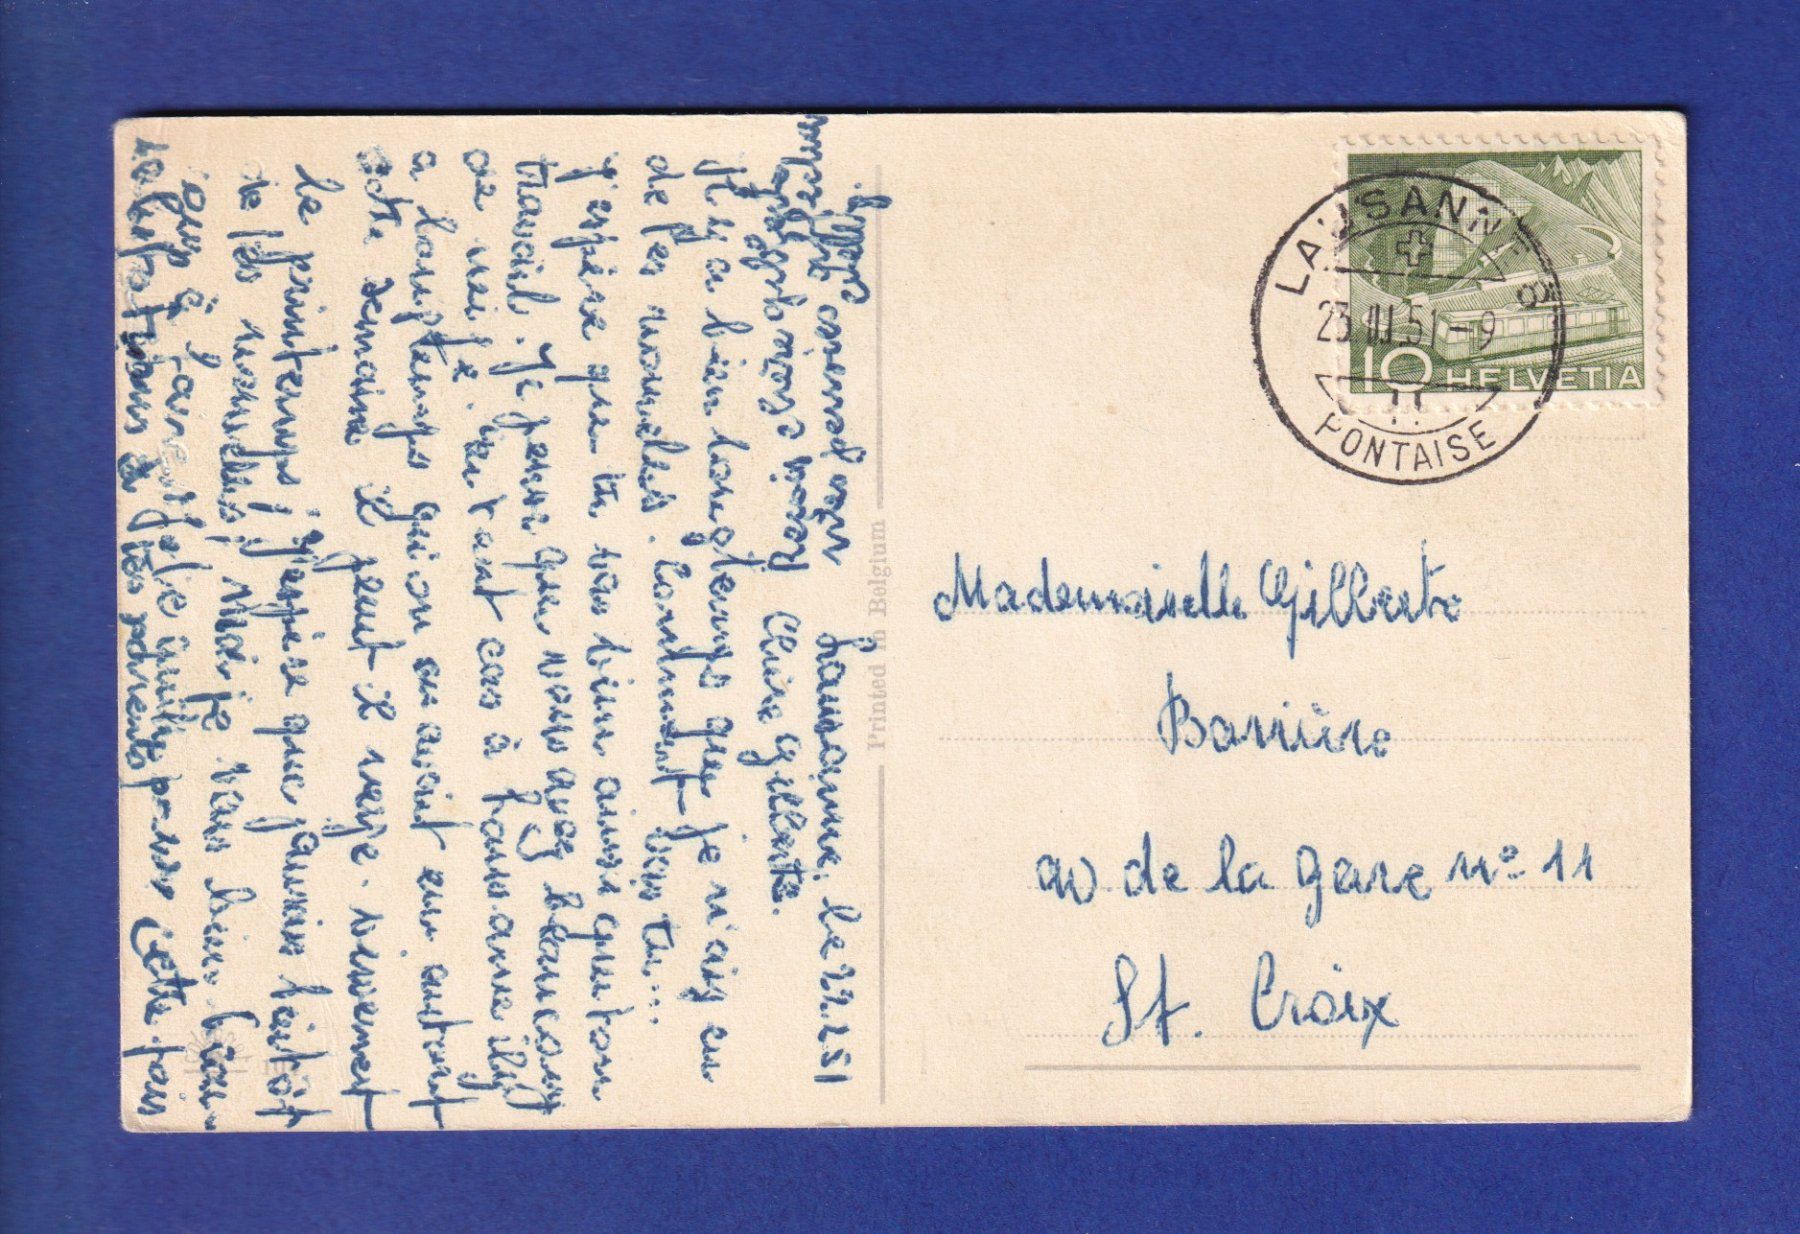 Lausanne, le 22.2.51
Chère Gilberte.
Il y a bien longtemps que je n'ais eu
de tes nouvelles. Comment vas tu...
J'espère que tu vas bien ainsi que ton
travail. Je pense que vous avez beaucoup
de neige, en tout cas à Lausanne il y
a longtemps qu'on en avait eu autant
cette semaine il pleut il neige. vivement
le printemps, j'espère que j'aurais bientôt
de tes nouvelles, Moi je vais bien, beau-
coup à faire.
salutations à tes parents Cette fois
LAUSANNE 8
23.III.51-9
PONTAISE
10 HELVETIA
Mademoiselle Gilberte
Barrière
av de la gare n° 11
St. Croix
Printed in Belgium